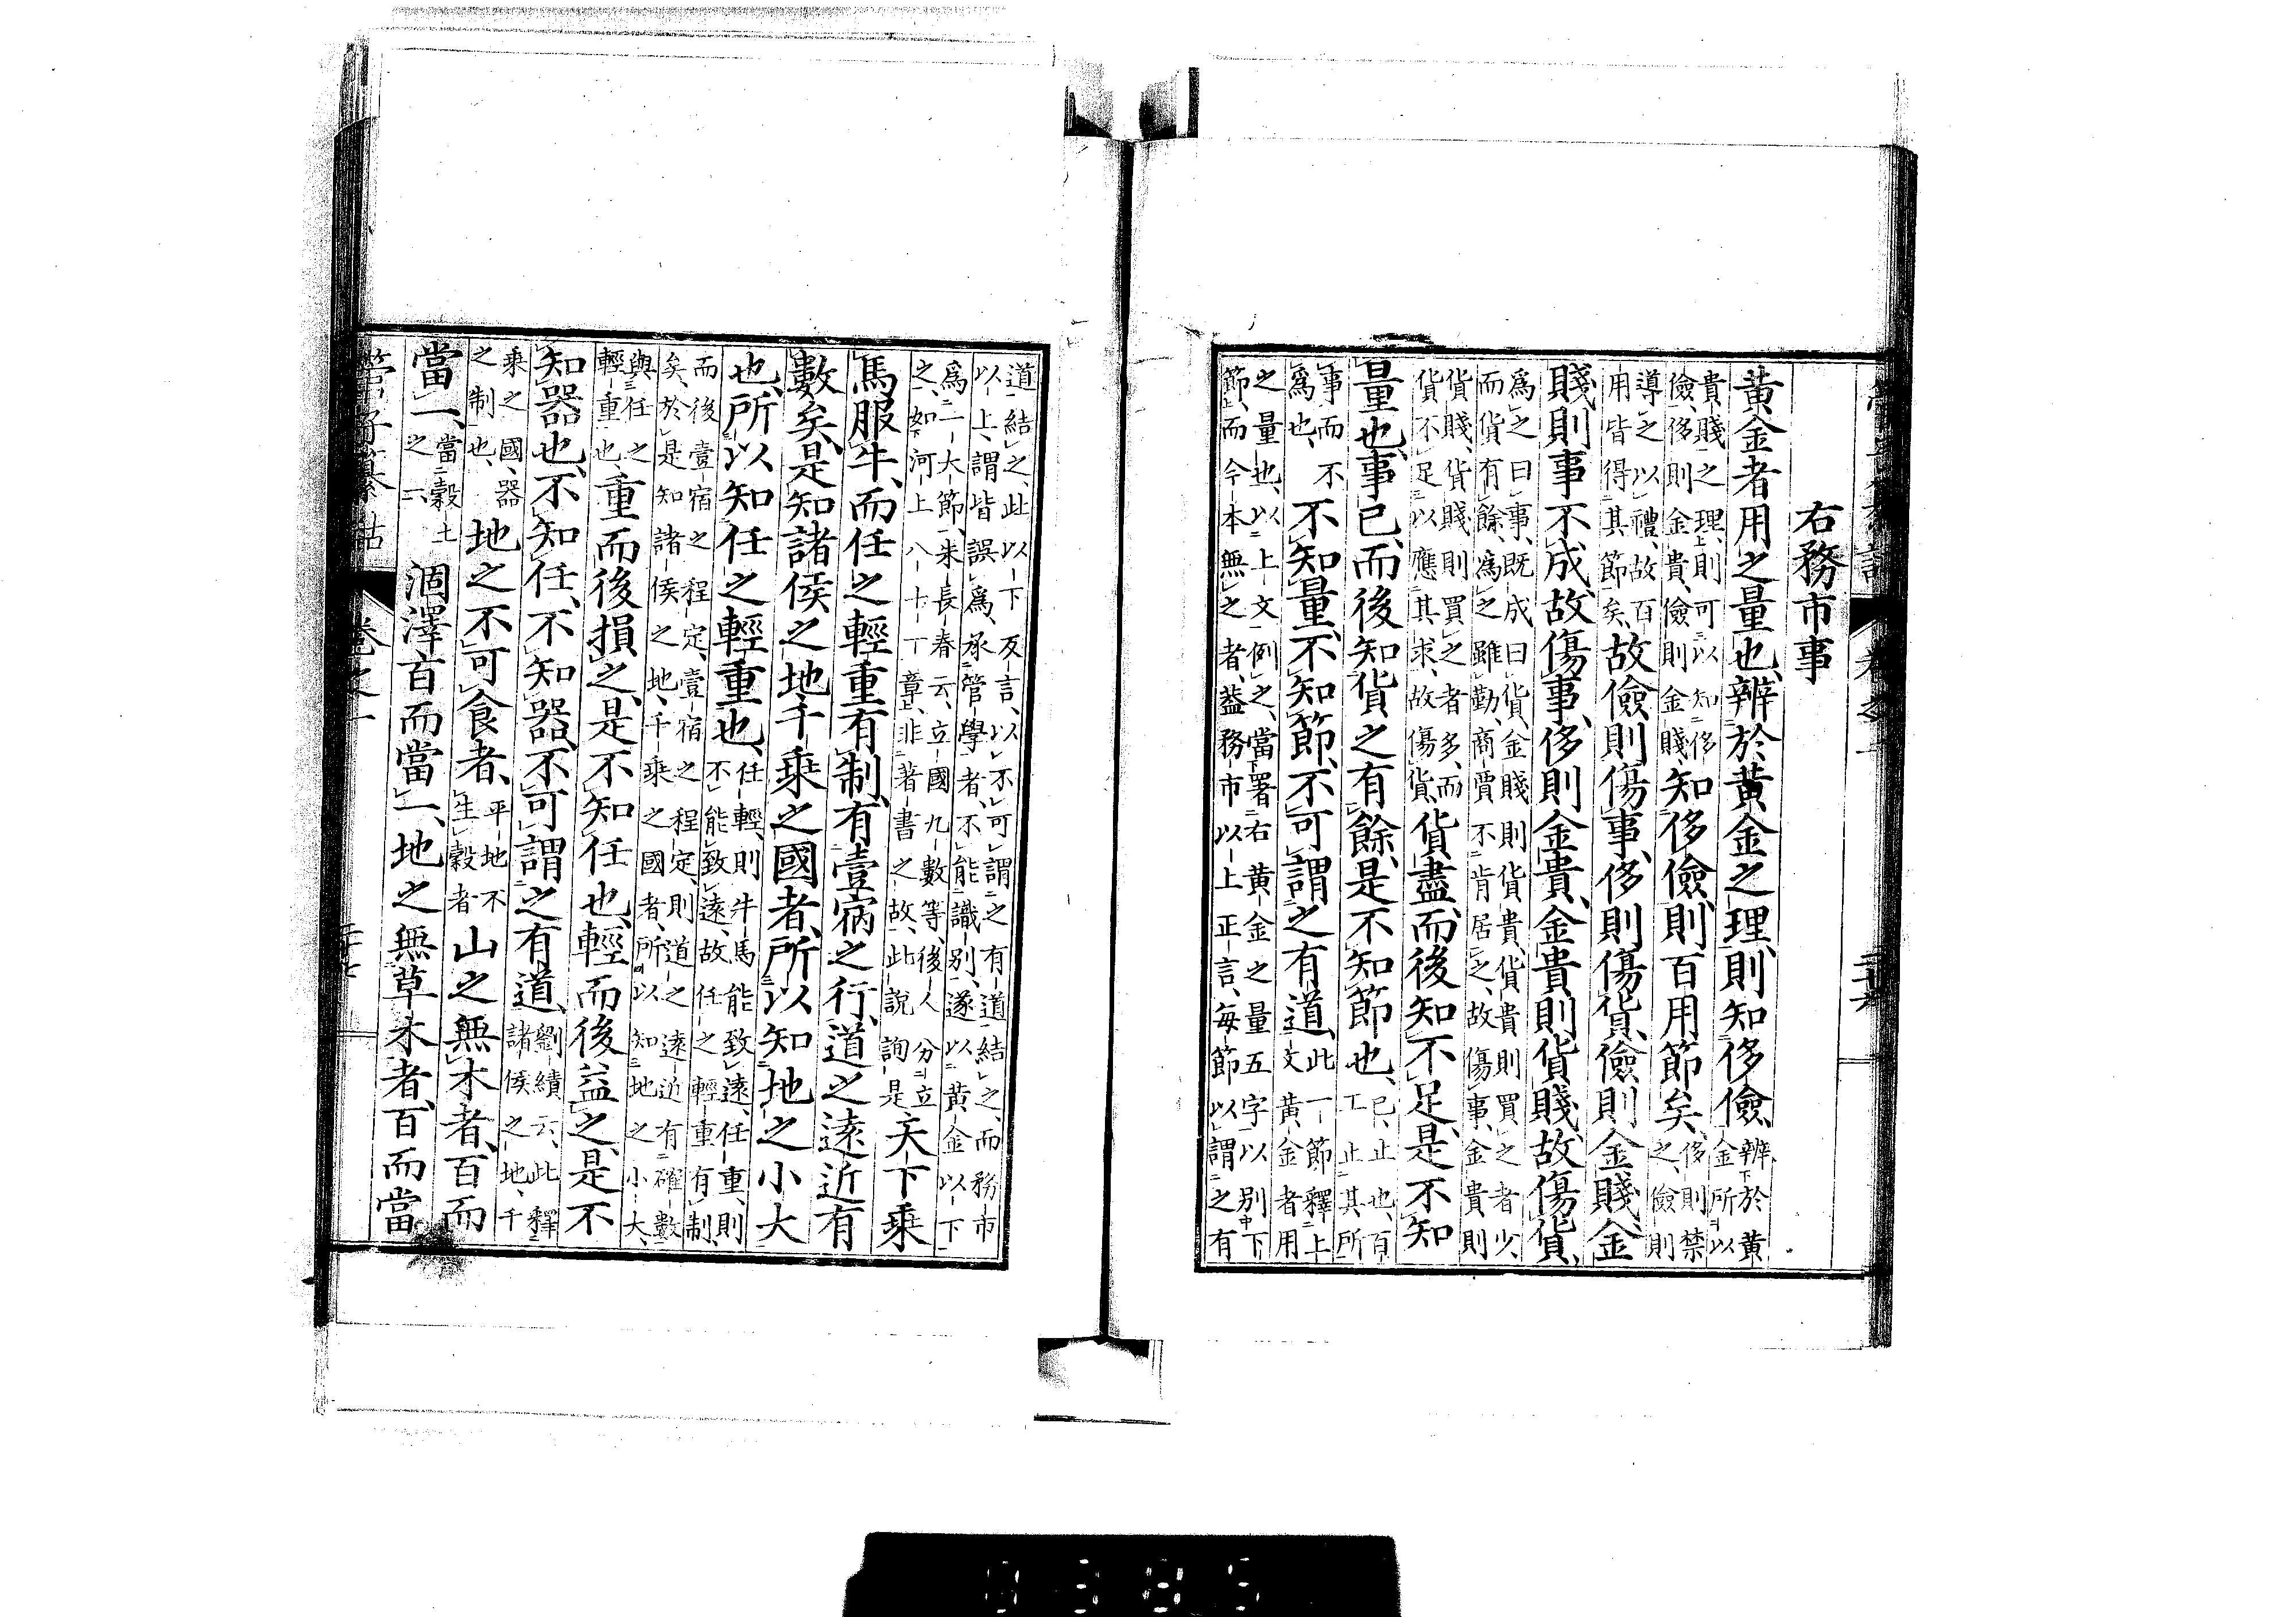 右務市事
黃金者用之量也、辨於黃金之理、則知侈儉、
辨於黃
金所以
貴賤之理、則可以知侈
儉、侈則金貴、儉則金賤、
知侈儉、則百用節矣、
侈則禁
之、儉則
導之以禮、故百
用皆得其節矣、
故儉則傷事、侈則傷貨、儉則金賤、金
賤則事不成、故傷事、侈則金貴、金貴則貨賤、故傷貨、
爲之曰事、既成曰貨、金賤則貨貴、貨貴則買之者少、
而貨有餘、爲之雖勤、商賈不肯居之、故傷事、金貴則
貨賤、貨賤則買之者多、而
貨不足以應其求、故傷貨、
貨盡而後知不足、是不知
量也、事已而後知貨之有餘、是不知節也、
已、止也、百
工止其所
事而不
爲也、
不知量、不知節、不可謂之有道、
此一節釋上
文黃金者用
之量也、以上文例之、當署右黃金之量五字以別下
節、而今本無之者、蓋務市以上正言、每節以謂之有
道結之、此以下反言、以不可謂之有道結之、而務市
以上、謂皆誤爲、承管學者、不能識別、遂以黃金以下
爲一大節、朱長春云、立國九數等、後人分立
之、如河上八十一章、非著書之故、此說詢是、
天下乘
馬服牛、而任之輕重有制、有壹宿之行、道之遠近有
數矣、是知諸侯之地、千乘之國者、所以知地之小大
也、所以知任之輕重也、
任輕、則牛馬能致遠、任重、則
不能致遠、故任之輕重有制、
而後壹宿之程定、壹宿之程定、則道之遠近有確數
矣、於是知諸侯之地、千乘之國者、所以知地之小大、
與任之
輕重也、
重而後損之、是不知任也、輕而後益之、是不
知器也、不知任、不知器、不可謂之有道、
劉績云、此釋
諸侯之地、千
乘之國、器
之制也、
地之不可食者、
平地不
生穀者
山之無木者、百而
當一、
當穀土
之一、
涸澤百而當一、地之無草木者、百而當
管子纂詁 卷之一 二十七